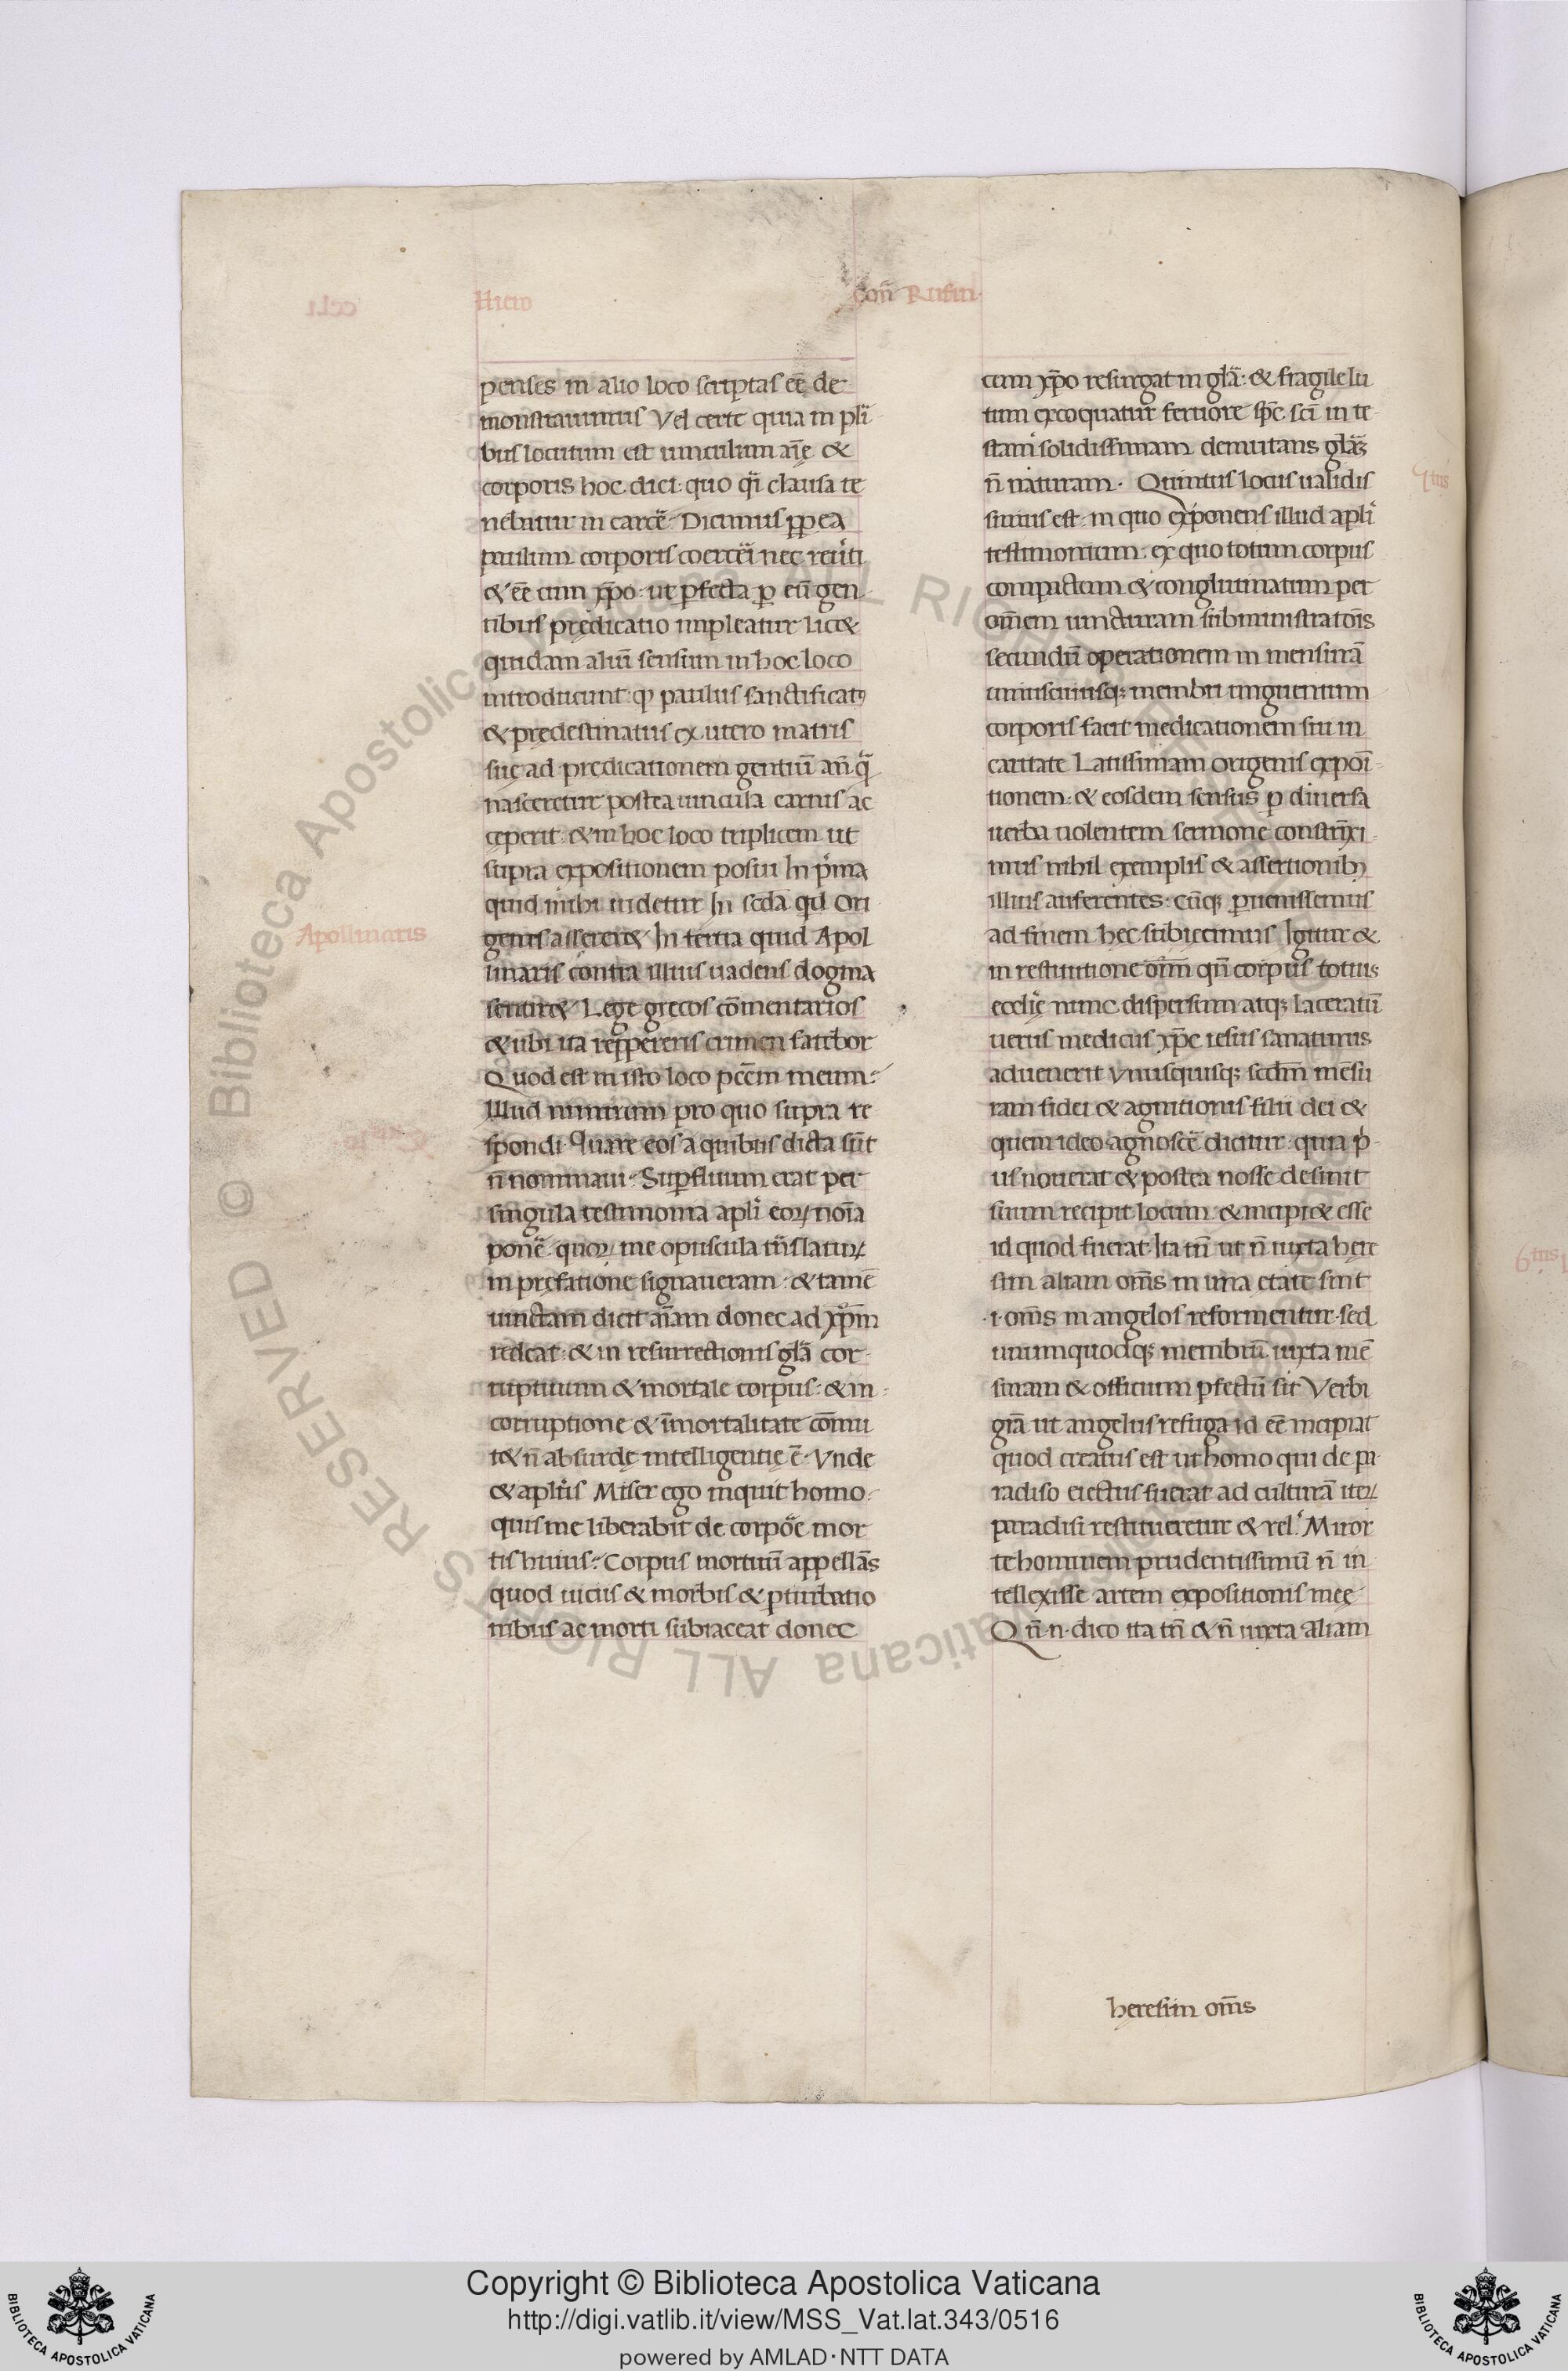 Hiero
con̄ Rufin·
penses in alio loco scriptas eē de
monstrauimus Vel certe quia in plī
bus locutum est uinculum aīę &
corporis hoc dici: quo qͣi clausa te
nebatur in carcē· Dicimus ꝓpea
paulum corporis coerceri nec reūti
& eē cum xp̄o· ut ꝑfecta ꝑ eū gen
tibus prędicatio impleatur lic&
quidam aliū sensum in hoc loco
introducunt· ꝙ paulus sanctificatꝰ
& prędestinatus ex utero matris
suę ad prędicationem gentiū an̄ qͣ̄
nasceretur postea uincula carnis ac
ceperit: & in hoc loco triplicem ut
supra expositionem posui In pͥma
quid mihi uidetur In scd̄a qd̄ Ori
genis asserer& In tertia quid Apol
Apollinaris
linaris contra illius uadens dogma
sentir& Lege grecos cōmentarios
& ubi ita reppereris crimen fatebor
Quod est in isto loco pcc̄m meum?
Illud nimirum pro quo supra re
spondi· Quare eos a quibus dicta sūt
n̄ nominaui· Suꝑfluum erat per
singula testimonia apl̄i eoꝝ noīa
ponē· quoꝝ me opuscula trn̄slatuꝝ
in pręfatione signaueram· & tamē
uinctam dicit aīam donec ad xp̄m
redeat: & in resurrectionis gl̄a cor-
ruptiuum & mortale corpus: & in-
corruptione & īmortalitate cōmu
t& n̄ absurdę intelligentię ē· Vnde
& apl̄us Miser ego inquit homo·
quis me liberabit de corpoͤe mor
tis huius? Corpus mortuū appellās
quod uiciis & morbis & ꝑturbatio
nibus ac morti subiaceat donec
cum xp̄o resurgat in gl̄a: & fragile lu
tum excoquatur feruore sp̄c sc̄i in te
stam solidissimam demutans gl̄aꝫ
n̄ naturam· Quintus locus ualidis
5tus
simus est· in quo exponens illud apl̄i
testimonium· ex quo totum corpus
compactum & conglutinatum per
om̄em iuncturam subministratōis
secundū operationem in mensurā
uniuscuiusqꝫ membri unguentum
corporis facit medicationem sui in
caritate Latissimam origenis expoī
tionem: & eosdem sensus ꝑ diuersa
uerba uolentem sermone constrīxi
mus nihil exemplis & assertionibꝰ
illius auferentes· cūqꝫ ꝑuenissemus
ad finem hec subiecimus Igitur &
in restitutione oīm qn̄ corpus totius
ecclię nunc dispersum atqꝫ laceratū
uerus medicus xp̄c iesus sanaturus
aduenerit Vnusquisqꝫ scd̄m mēsu
ram fidei & agnitionis filii dei &
quem ideo agnoscē dicitur· quia pͥ
us nouerat & postea nosse desiuit
suum recipit locum· & incipi& esse
id quod fuerat· Ita tn̄ ut n̄ iuxta here
sim aliam om̄s in una etate sint
·i· om̄s in angelos reformentur· sed
unumquodqꝫ membrū· iuxta mē
suram & officium ꝑfectū sit Verbi
grā ut angelus refuga id eē incipiat
quod creatus est ut homo qui de pa
radiso eiectus fuerat ad culturā iteꝝ
paradisi restitueretur & rel̄· Miror
te hominem prudentissimū n̄ in
tellexisse artem expositionis meę
Qn̄·n·dico ita tn̄ & n̄ iuxta aliam
6tus
heresim om̄s
Copyright © Biblioteca Apostolica Vaticana
http://digi.vatlib.it/view/MSS_Vat.lat.343/0516
powered by AMLAD·NTT DATA
BIBLIOTECA APOSTOLICA VATICANA
BIBLIOTECA APOSTOLICA VATICANA
© Biblioteca Apostolica Vaticana ALL RIGHTS RESERVED